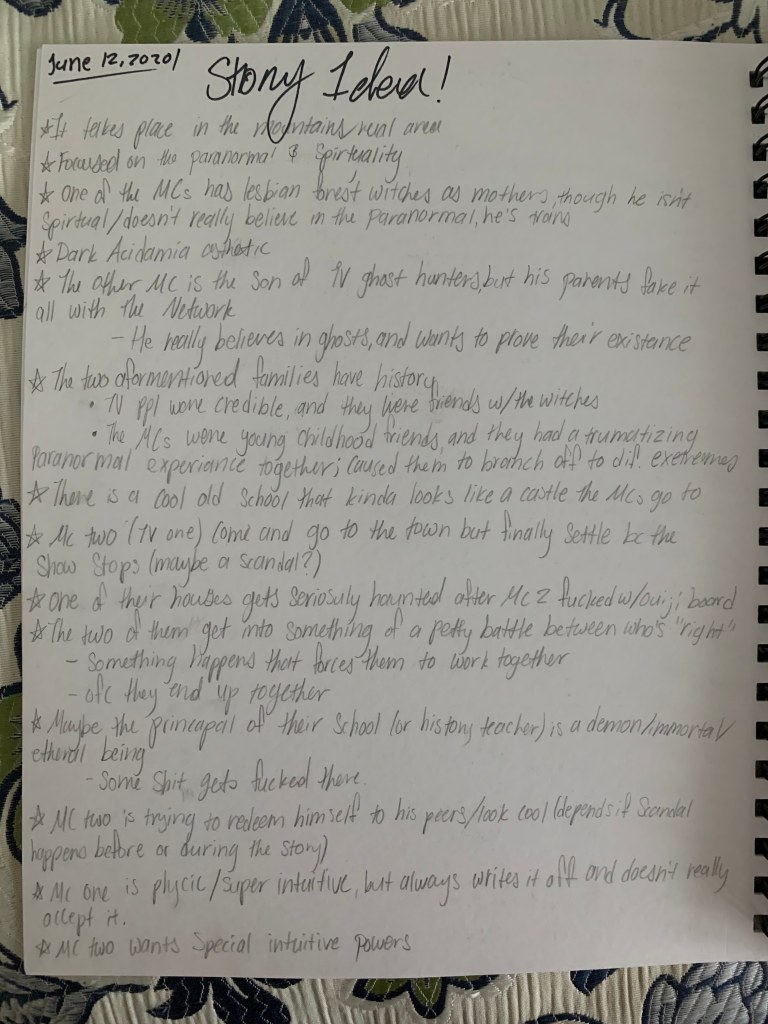 June 12, 2020/
Story Idea!
☆It takes place in the mountains/rual area
☆Focused on the paranormal & Spirtuality
☆ One of the MCs has lesbian forest witches as mothers, though he isn't
Spirtual/doesn't really believe in the paranormal, he's trans
☆Dark Acidamia asthetic
☆ The other MC is the son of TV ghost hunters, but his parents fake it
all with the Network
- He really believes in ghosts, and wants to prove their existance
☆ The two aformentioned families have history
• TV ppl were credible, and they were friends w/the witches
• The MCs were young childhood friends, and they had a trumatizing
Paranormal experiance together; caused them to branch off to dif. exetremes
☆There is a cool old school that kinda looks like a castle the MCs go to
☆ Mc two (TV one) come and go to the town but finally settle bc the
Show Stops (maybe a scandal?)
☆ One of their houses gets soriosuly haunted after Mc 2 fucked w/ouiji board
☆The two of them get into something of a petty battle between who's "right"
- Something happens that forces them to work together
- ofc they end up together
☆ Maybe the princapal of their School (or history teacher) is a demon/immortal/
etheral being
- Some Shit gets fucked there.
☆ MC two is trying to redeem himself to his peers/look cool (depends if Scandal
happens before or during the story)
☆ Mc one is phycic/super intuitive, but always writes it off and doesn't really
accept it.
☆ MC two wants Special intuitive powers